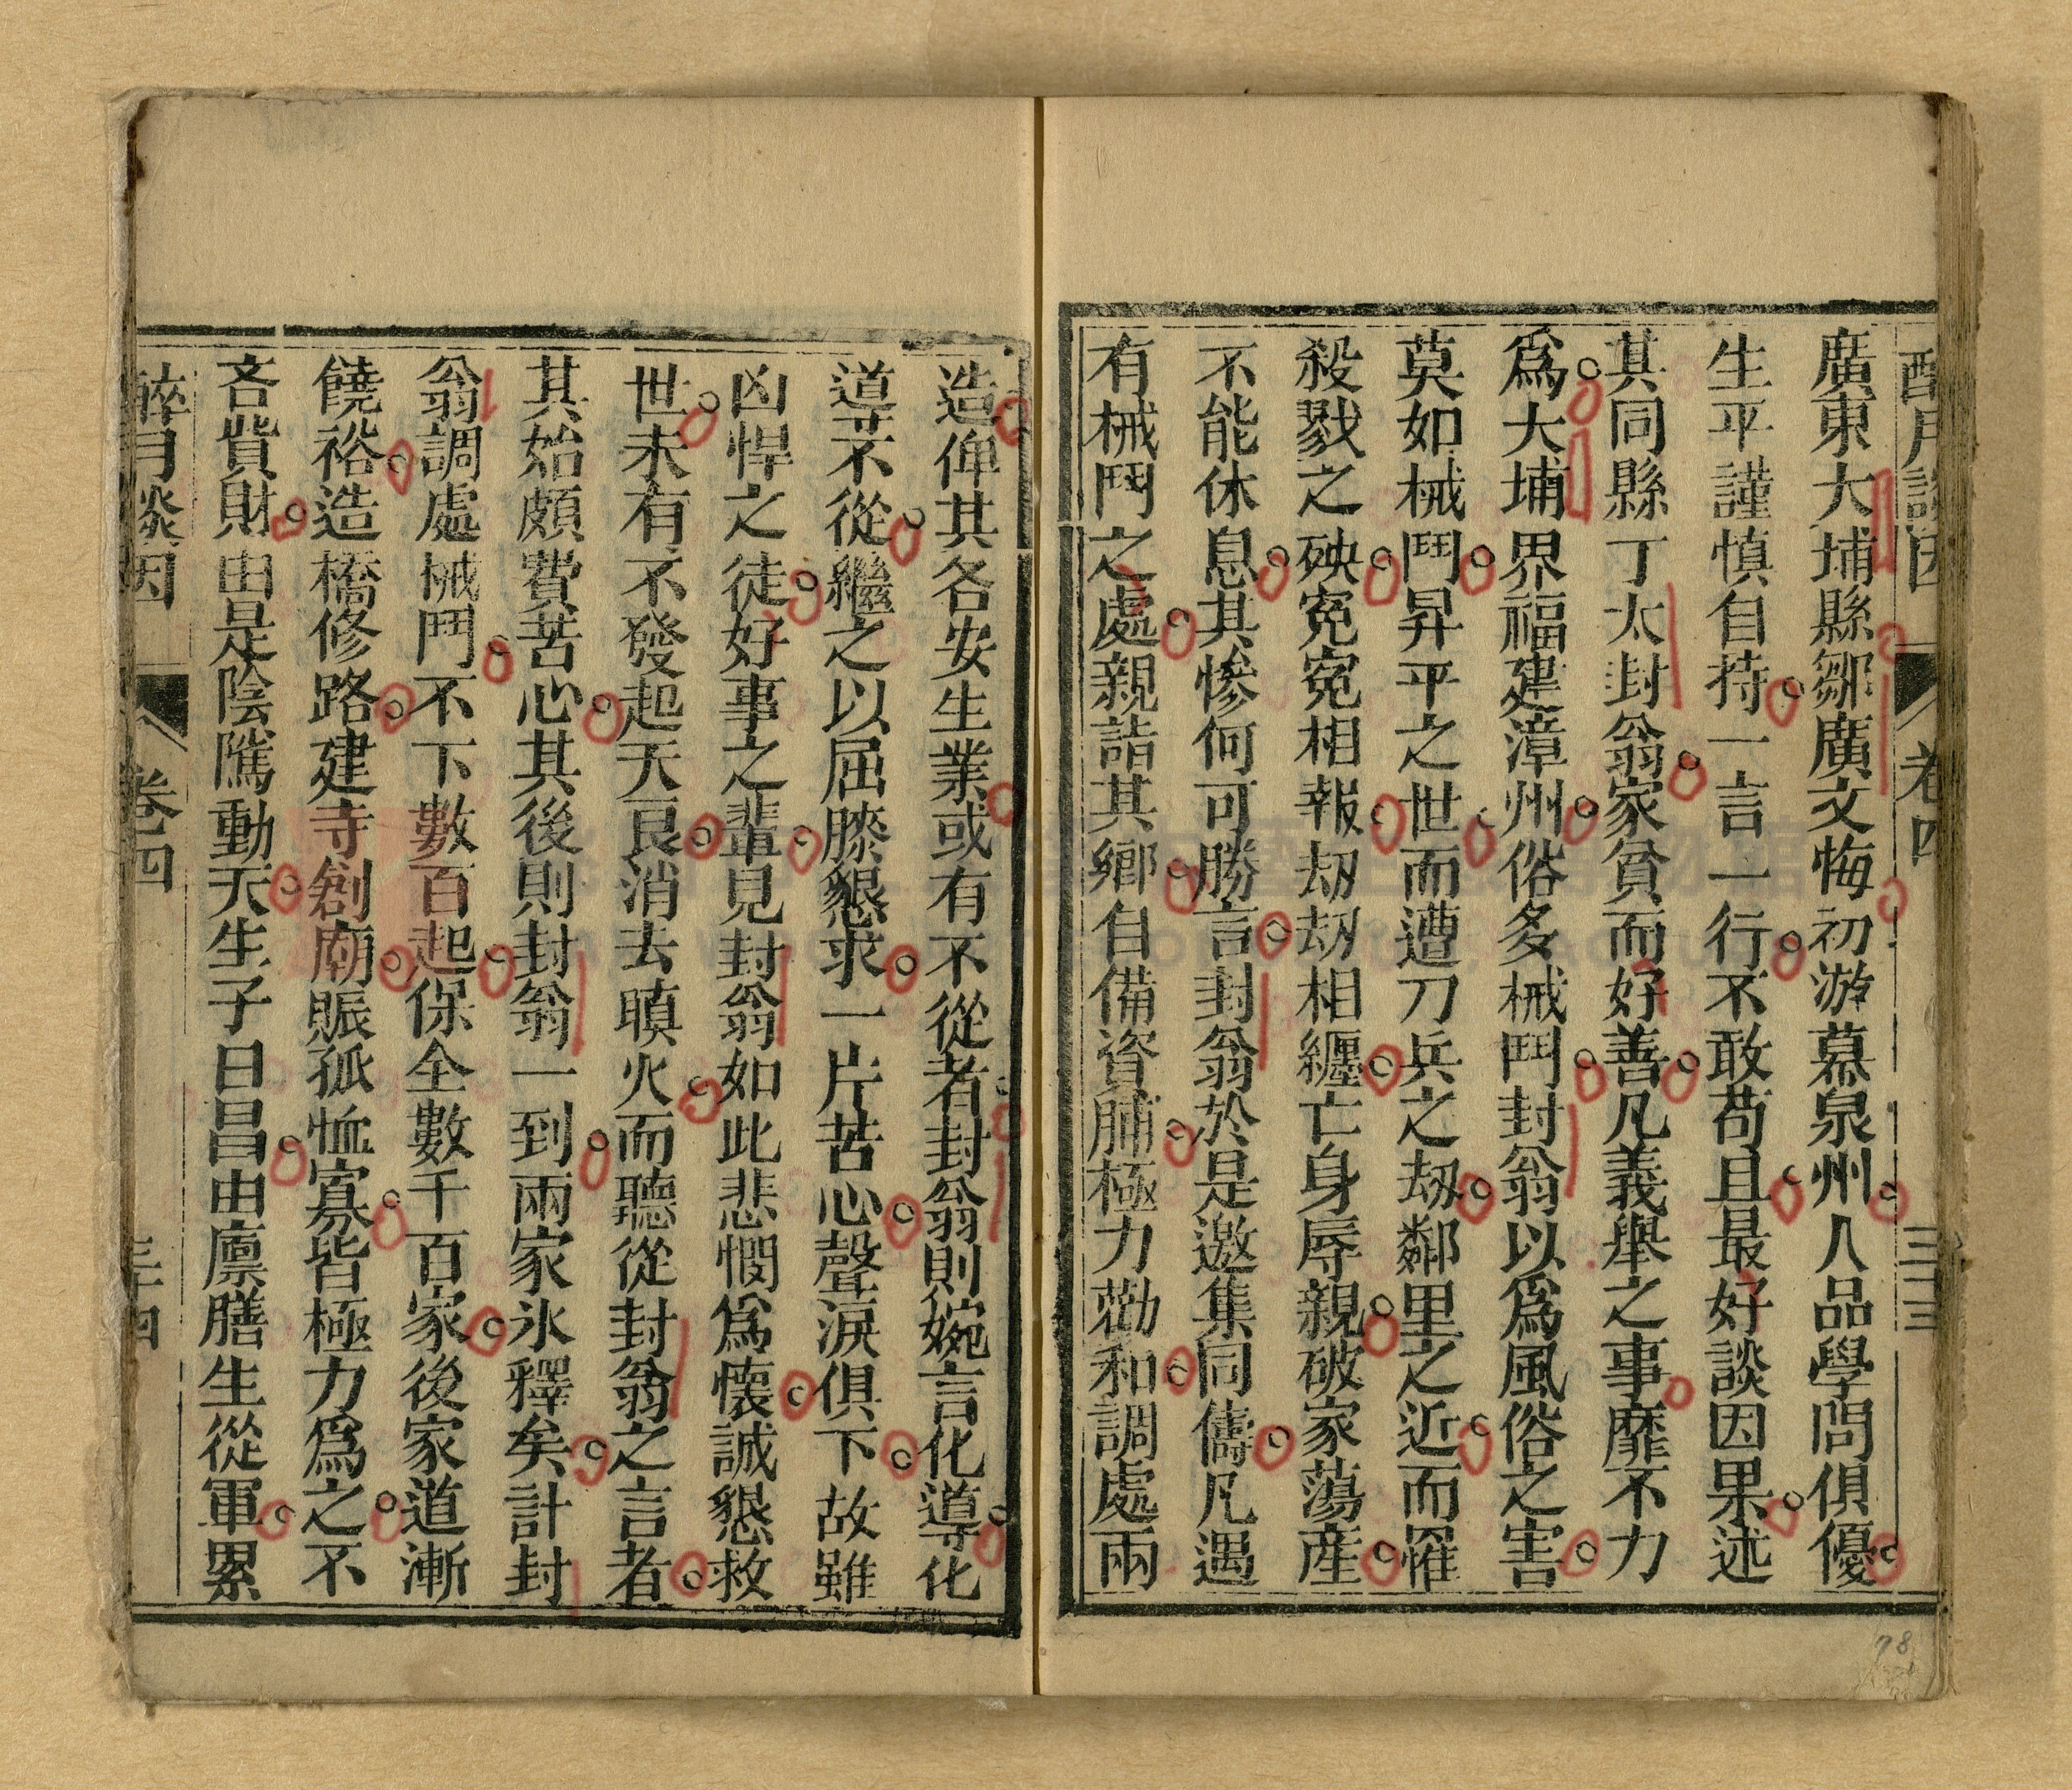 醉月談因 卷四 三十三
廣東大埔縣鄒廣文悔初游幕泉州人品學問俱優
生平謹慎自持一言一行不敢苟且最好談因果述
其同縣丁太封翁家貧而好善凡義舉之事靡不力
爲大埔界福建漳州俗多械鬥封翁以爲風俗之害
莫如械鬥昇平之世而遭刀兵之刼鄰里之近而罹
殺戮之殃冤冤相報刼刼相纏亡身辱親破家蕩產
不能休息其慘何可勝言封翁於是邀集同儔凡遇
有械鬥之處親詣其鄉自備資脯極力勸和調處兩
造俾其各安生業或有不從者封翁則婉言化導化
導不從繼之以屈膝懇求一片苦心聲淚俱下故雖
凶悍之徒好事之輩見封翁如此悲憫爲懷誠懇救
世未有不發起天良消去嗔火而聽從封翁之言者
其始頗費苦心其後則封翁一到兩家氷釋矣計封
翁調處械鬥不下數百起保全數千百家後家道漸
饒裕造橋修路建寺創廟賑孤恤寡皆極力爲之不
吝貲財由是陰隲動天生子日昌由廪膳生從軍累
醉月談因 卷四 三十四
78